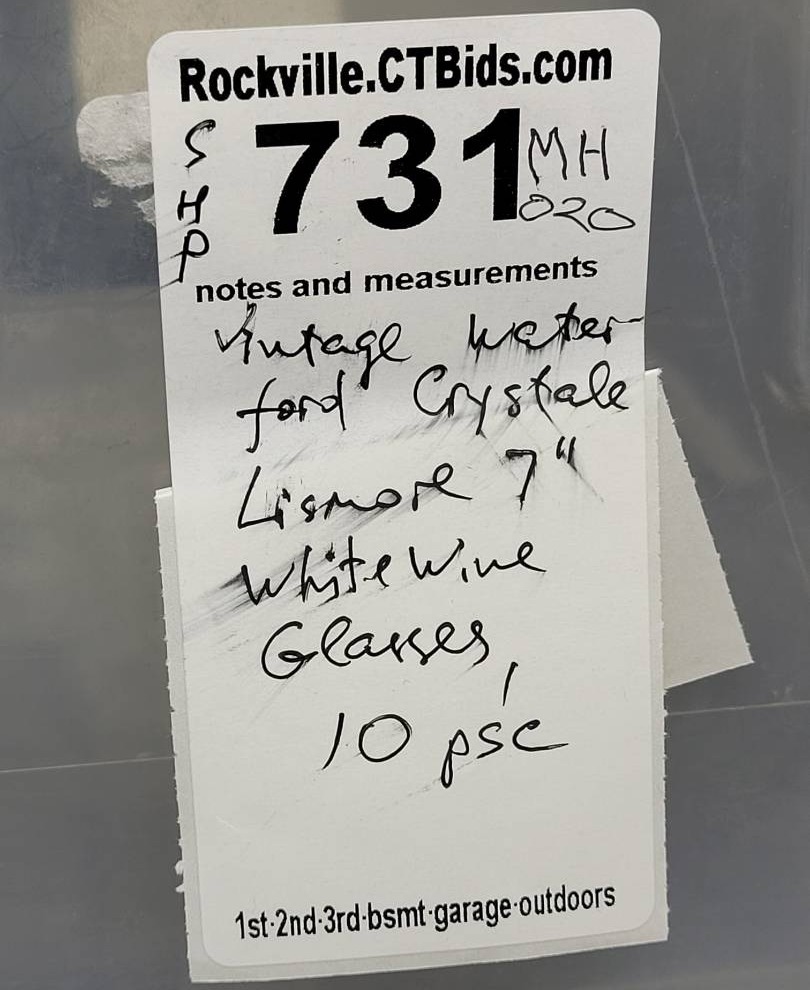 Rockville.CTBids.com
SHP
731
MH
020
notes and measurements
Vintage Water-
ford Crystale
Lismore 7"
White Wine
Glasses,
10 psc
1st·2nd·3rd·bsmt·garage·outdoors